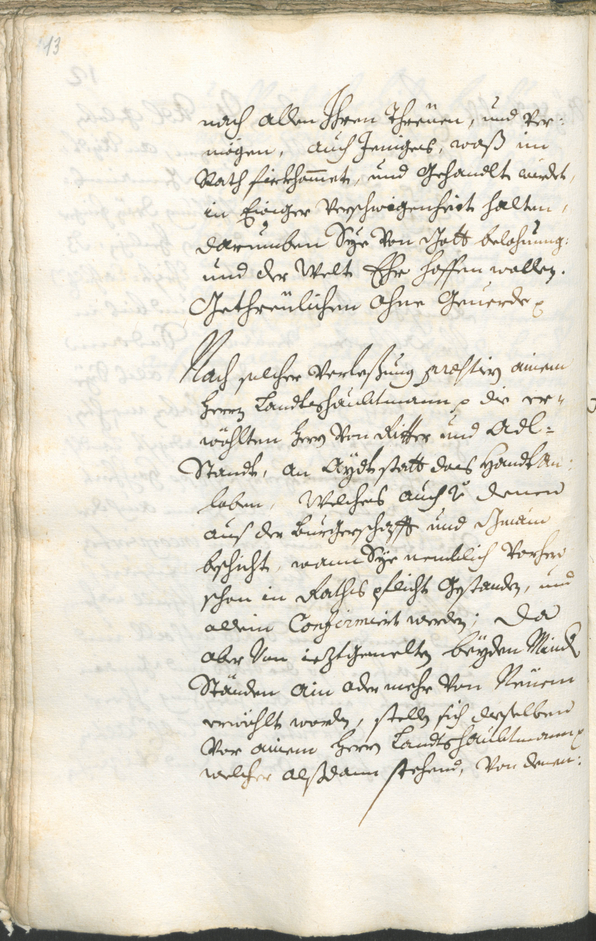 13
nach allen Ihren Threuen, und Ver-
mögen, auch Jeniges, waß im
Rath firkhommet, und Gehandlt wirdet,
in Ewiger Verschwigenheit halten,
darumben Sye von Gott belohnung:
und der Welt Ehr hoffen wollen.
Gethreulichen ohne Geuerde
Nach solcher Verlesung einem
Herrn Landtshaubtmann die er-
wöhlten Herrn von Ritter und Adl-
Standt, an Aydts statt das Handt An-
loben, Welches auch denen
aus der Burgerschafft und Gmain
beschicht, wann Sye nemblich vorhero
schon in Raths pflicht Gestanden, und
allein Confirmiert werden; Da
aber Von ieztgemelten beyden
Ständen ain oder mehr von Neuem
erwöhlt worden, stelln sich dieselben
vor ainem Herrn Landtshaubtmann
welcher alßdann stehend, von denen: